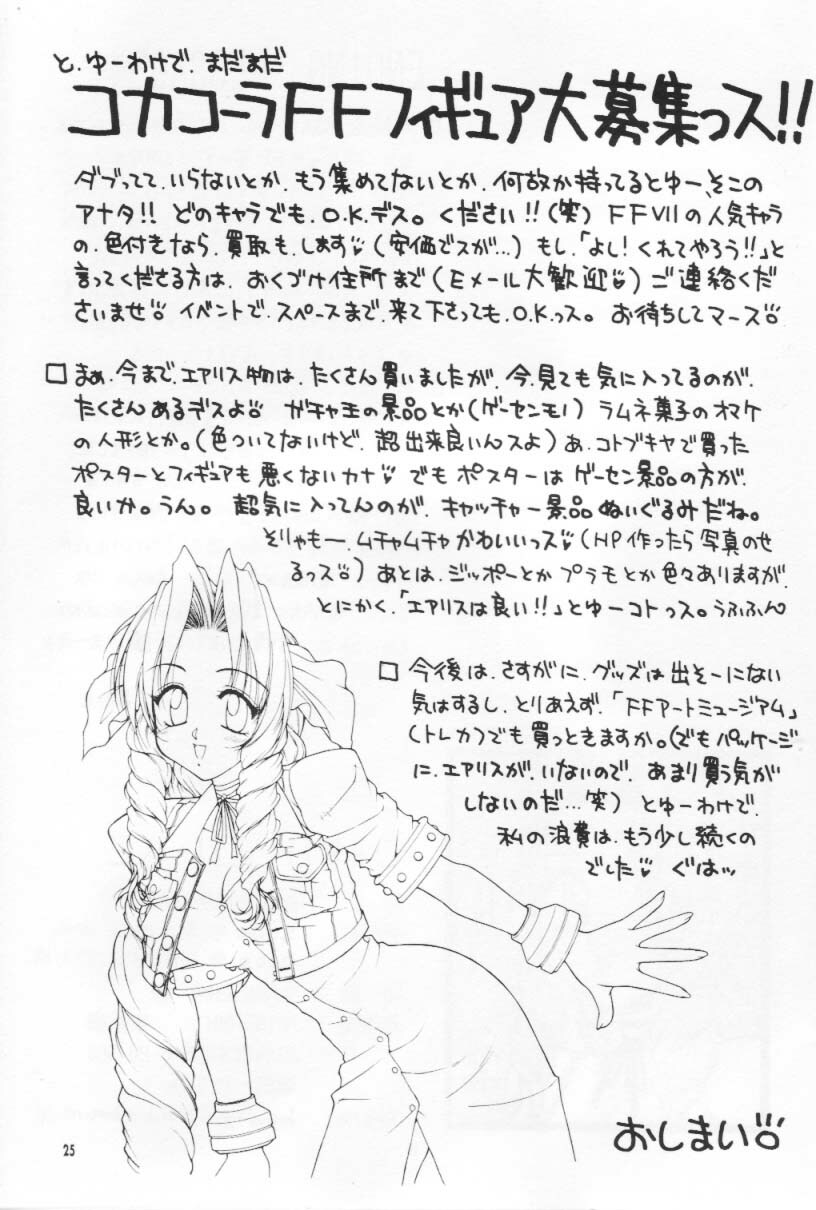 と、ゆーわけで、まだまだ
コカコーラFFフィギュア大募集っス!!
ダブってて、いらないとか、もう集めてないとか、何故か持ってるとゆー、そこの
アナタ!! どのキャラでも、O.K.デス。ください!!(笑) FFVIIの人気キャラ
の、色付きなら、買取も、します(安価でスが…)もし、「よし!くれてやろう!!」と
言ってくださる方は、おくづけ住所まで(Eメール大歓迎)ご連絡くだ
さいませ イベントで、スペースまで、来て下さっても、O.K.っス。 お待ちしてマース
□ まぁ、今まで、エアリス物は、たくさん買いましたが、今、見ても気に入ってるのが、
たくさんあるデスよ ガチャ王の景品とか(ゲーセンモノ) ラムネ菓子のオマケ
の人形とか。(色ついてないけど、超出来良いんスよ)あ、コトブキヤで買った
ポスターとフィギュアも悪くないカナ でもポスターはゲーセン景品の方が、
良いか。うん。 超気に入ってんのが、キャッチャー景品ぬいぐるみだね。
そりゃもー、ムチャムチャかわいいっス(HP作ったら写真のせ
るっス)あとは、ジッポーとかプラモとか色々ありますが、
とにかく、「エアリスは良い!!」とゆーコトっス。うふふん
□ 今後は、さすがに、グッズは出そーにない
気はするし、とりあえず、「FFアートミュージアム」
(トレカ)でも買っときますか。(でもパッケージ
に、エアリスが、いないので、あまり買う気が
しないのだ…笑) とゆーわけで、
私の浪費は、もう少し続くの
でした ぐはッ
おしまい
25